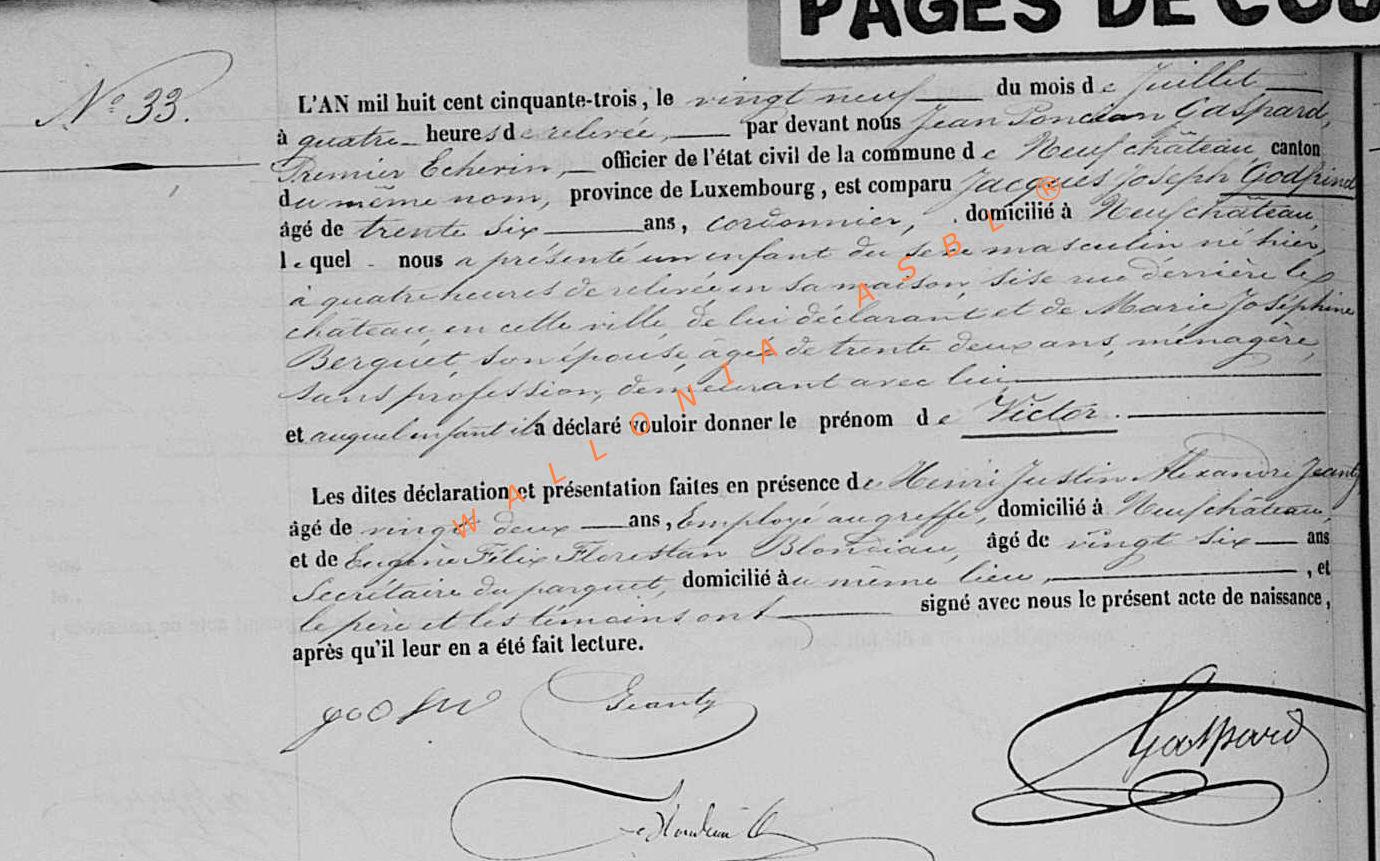 PAGES DE COU
N° 33.
L'AN mil huit cent cinquante-trois, le vingt neuf du mois de Juillet
à quatre heures de relevée, par devant nous Jean Poncian Gaspard,
Premier Echevin, officier de l'état civil de la commune de Neufchâteau, canton
du même nom, province de Luxembourg, est comparu Jacques Joseph Godfrind
âgé de trente six ans, cordonnier, domicilié à Neufchâteau,
lequel nous a présenté un enfant du sexe masculin né hier,
à quatre heures de relevée en sa maison, sise rue derrière le
château, en cette ville de lui déclarant et de Marie Joséphine
Berguet, son épouse, âgée de trente deux ans, ménagère,
sans profession, demeurant avec lui
et auquel enfant il a déclaré vouloir donner le prénom de Victor.
Les dites déclaration et présentation faites en présence de Henri Justin Alexandre Jeanty
âgé de vingt deux ans, Employé au greffe, domicilié à Neufchâteau,
et de Eugène Félix Florestan Blondiau, âgé de vingt six ans
Secrétaire du parquet, domicilié au même lieu, , et
le père et les témoins ont signé avec nous le présent acte de naissance,
après qu'il leur en a été fait lecture.
Jeanty
Gaspard
WALLONIA ASBL ®